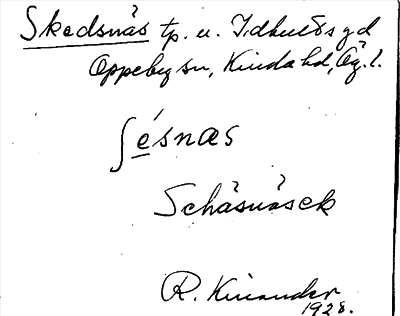 Skedsnäs tp. u. Idhults gd
Oppeby sn, Kinda hd, Ög. l.
ʃésnas
Schäsnäsek
R. Kinander
1928.